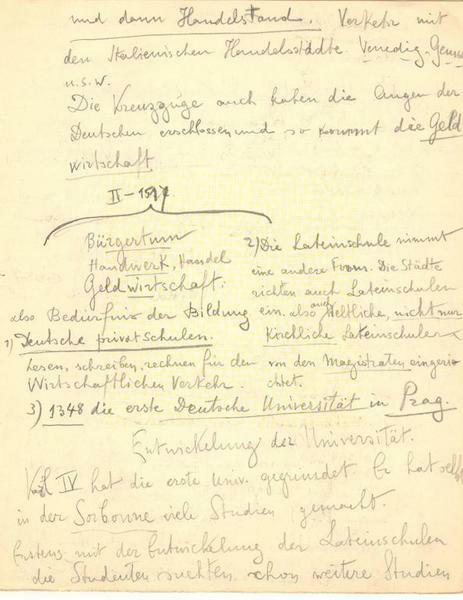 und dann Handelstand. Verkehr mit
den Italienischen Handelsstädte. Venedig, Genua
u.s.w.
Die Kreuzzüge auch haben die Augen der
Deutschen erschlossen und so kommt die Geld
wirtschaft
II – 15
Bürgertum
Handwerk, Handel
Geldwirtschaft.
also Bedürfnis der Bildung
1) Deutsche privat Schulen.
Lesen, schreiben, rechnen für den
Wirtschaftlichen Verkehr.
2) Die Lateinschule nimmt
eine andere Form. Die Städte
richten auch Lateinschulen
ein. also auch Weltliche, nicht nur
kirchliche Lateinschulen
von den Magistraten eingeri-
chtet.
3) 1348 die erste Deutsche Universität in Prag.
Entwickelung der Universität.
Karl IV hat die erste Univ. gegründet. Er hat selbst
in der Sorbonne viele Studien gemacht.
Erstens mit der Entwickelung der Lateinschulen
die Studenten suchten schon weitere Studien